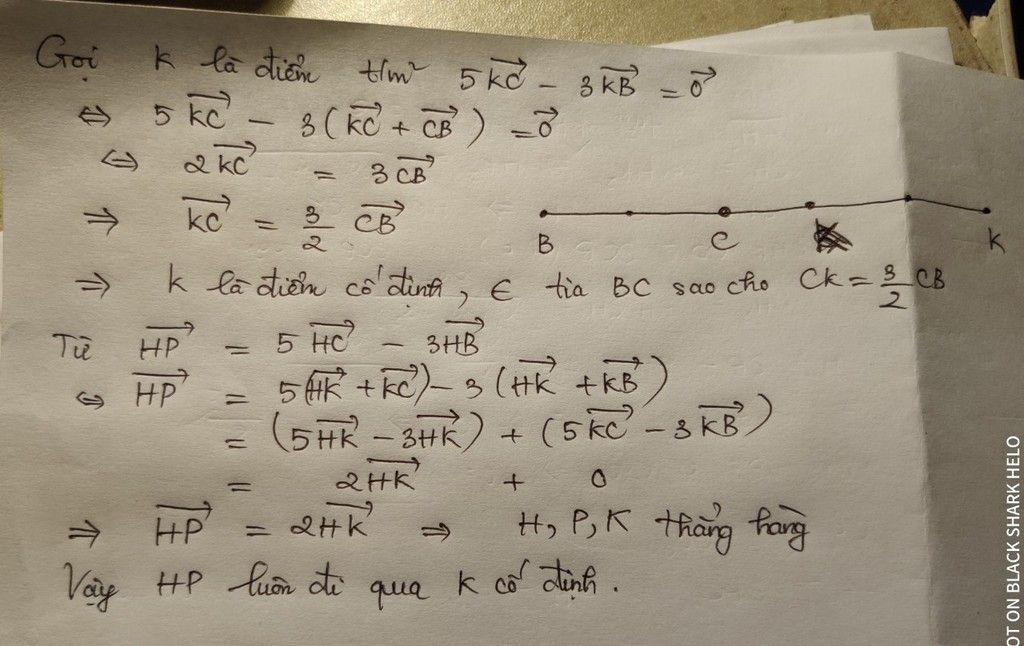 Gọi K là điểm t/m² 5KC⃗ - 3KB⃗ = 0⃗
⇔ 5KC⃗ - 3(KC⃗ + CB⃗) = 0⃗
⇔ 2KC⃗ = 3CB⃗
⇒ KC⃗ = 3/2 CB⃗
B C K
⇒ K là điểm cố định, ∈ tia BC sao cho CK = 3/2 CB
Từ HP⃗ = 5HC⃗ - 3HB⃗
⇔ HP⃗ = 5(HK⃗ + KC⃗) - 3(HK⃗ + KB⃗)
= (5HK⃗ - 3HK⃗) + (5KC⃗ - 3KB⃗)
= 2HK⃗ + 0
⇒ HP⃗ = 2HK⃗ ⇒ H, P, K thẳng hàng
Vậy HP luôn đi qua K cố định.
OT ON BLACK SHARK HELO